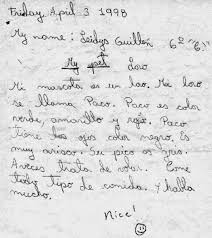 Friday April 3 1998
My name: Leidys Guillén 6º "6"
My pet Loro
Mi mascota es un lao. Me loro
se llama Paco. Paco es color
verde, amarillo y rojo. Paco
tiene los ojos color negro. Es
muy arisco. Su pico es gris.
Aveces trata de volar. Come
todo tipo de comida. y habla
mucho.
Nice!